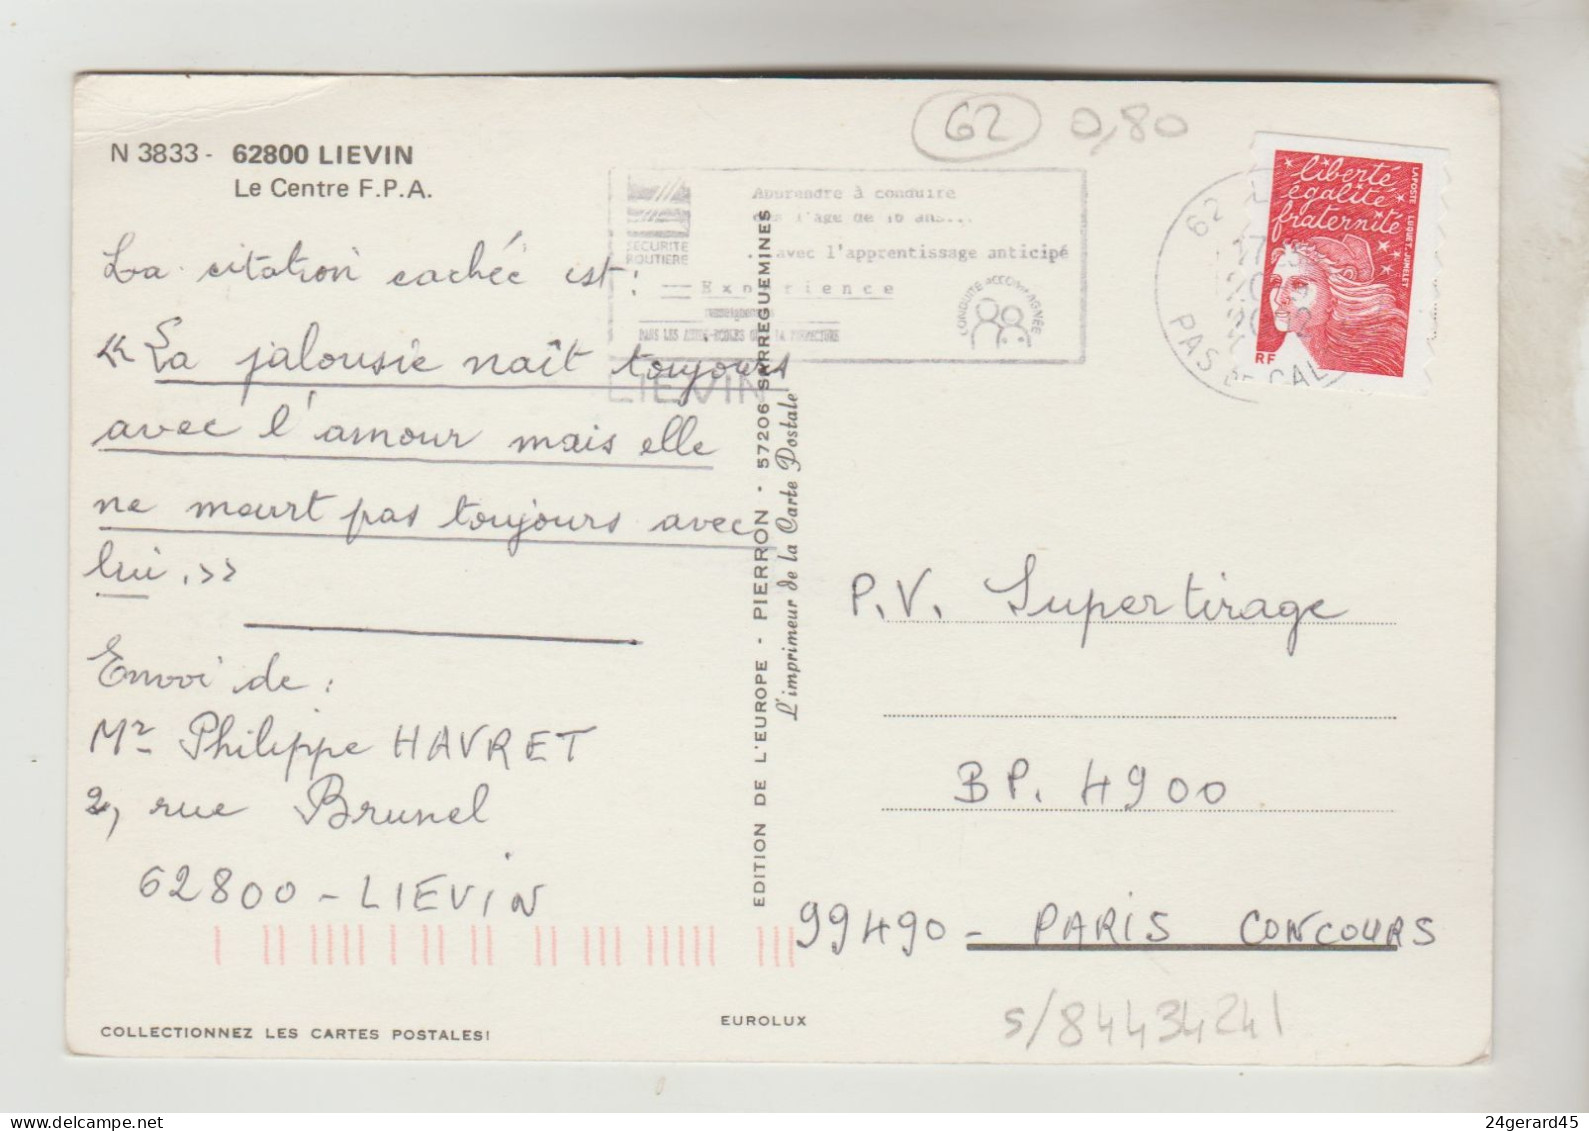 N 3833 - 62800 LIEVIN
Le Centre F.P.A.
La citation cachée est :
« La jalousie naît toujours
avec l'amour mais elle
ne meurt pas toujours avec
lui. »
Envoi de :
Mr Philippe HAVRET
2, rue Brunel
62800 - LIEVIN
COLLECTIONNEZ LES CARTES POSTALES!
EUROLUX
EDITION DE L'EUROPE - PIERRON - 57206 SARREGUEMINES
L'imprimeur de la Carte Postale
62 0,80
SECURITE
ROUTIERE
Apprendre à conduire
dès l'âge de 16 ans...
avec l'apprentissage anticipé
CONDUITE ACCOMPAGNÉE
LIEVIN
62
PAS DE CAL
liberté
égalité
fraternité
LA POSTE LUQUET. JUMELET
RF
P.V. Supertirage
BP. 4900
99490 - PARIS CONCOURS
s/84434241
24gerard45